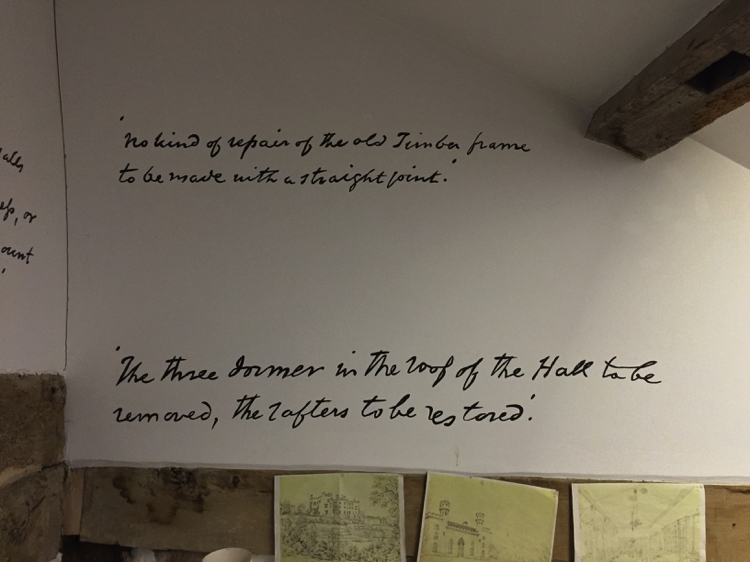 'No kind of repair of the old Timber frame
to be made with a straight joint.'
'The three dormer in the roof of the Hall to be
removed, the rafters to be restored.'
or
ount